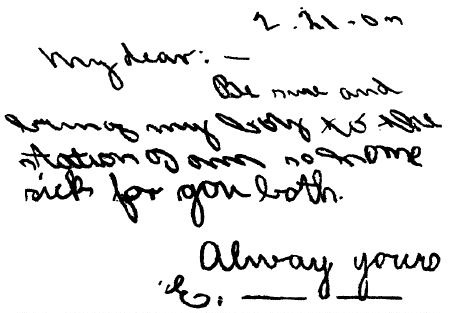 2.21-07
My dear:—
Be sure and
bring my boy to the
station I am so home
sick for you both.
Alway yours
E. — —